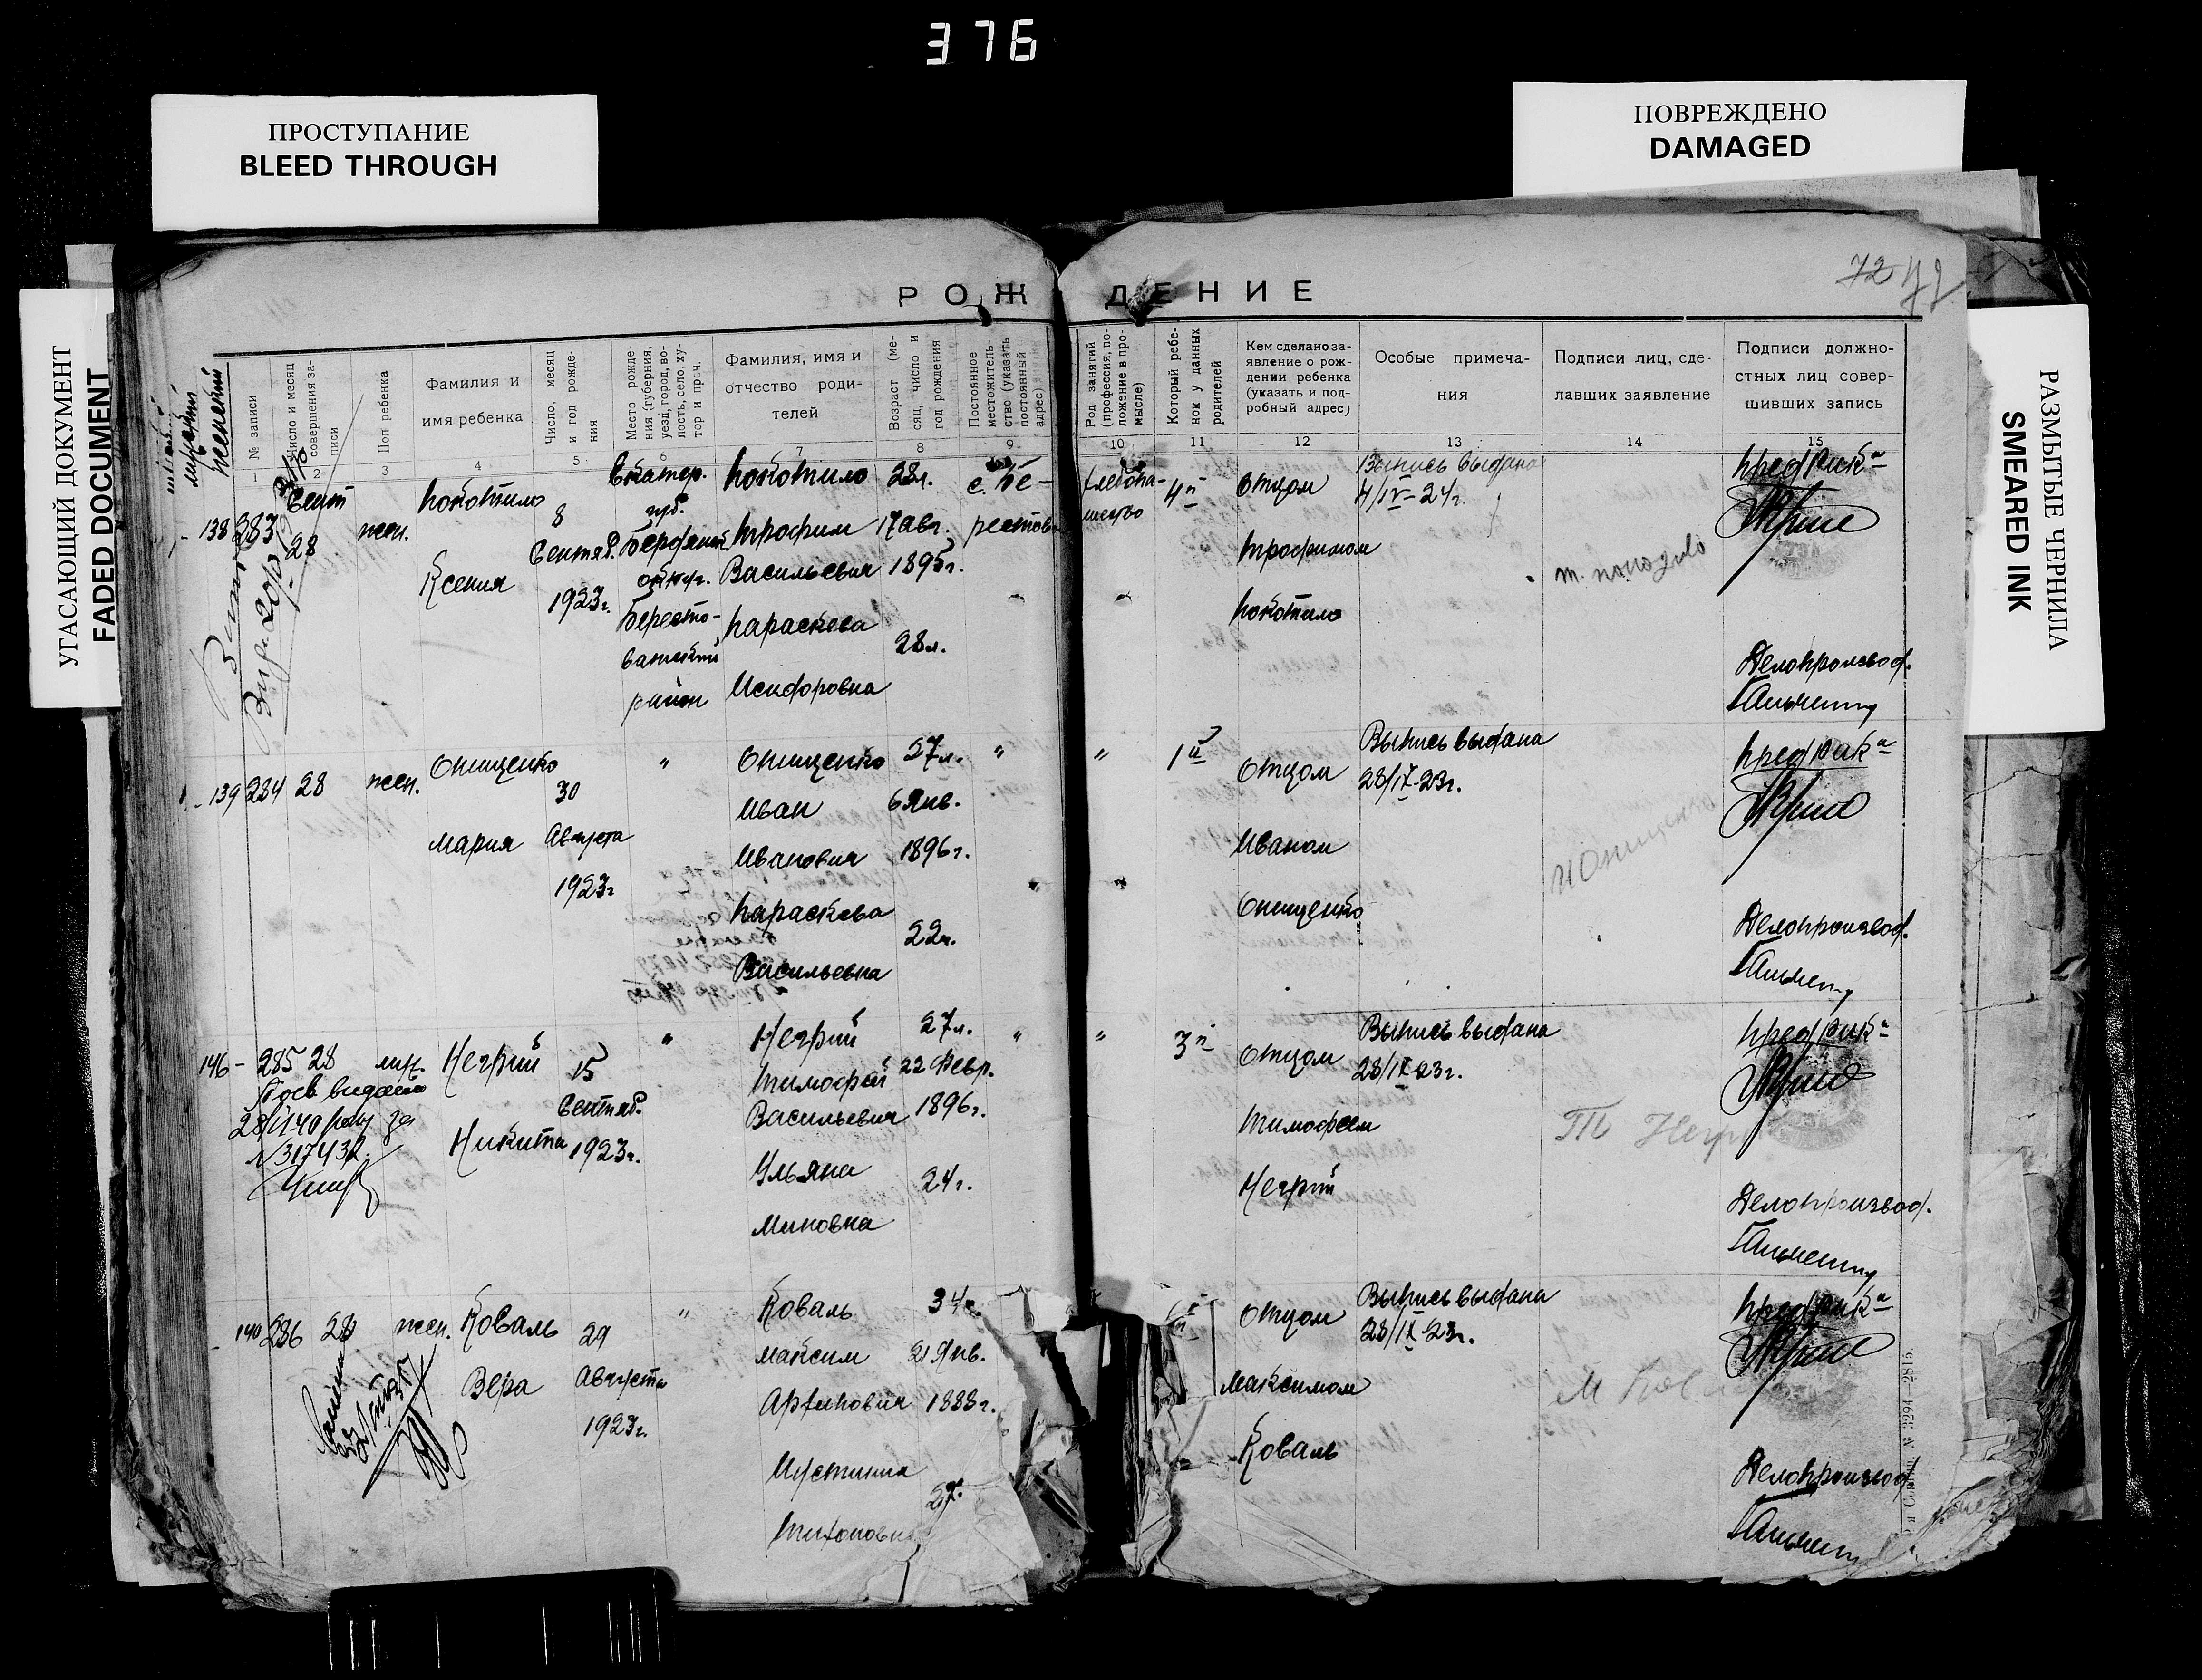 376
ПРОСТУПАНИЕ
BLEED THROUGH
ПОВРЕЖДЕНО
DAMAGED
УГАСАЮЩИЙ ДОКУМЕНТ
FADED DOCUMENT
РАЗМЫТЫЕ ЧЕРНИЛА
SMEARED INK
72
РОЖДЕНИЕ
мужский
женский
№ записи
Число и месяц совершения записи
Пол ребенка
Фамилия и
имя ребенка
Число, месяц
и год рожде-
ния
Место рожде-
ния (губерния,
уезд, город, во-
лость, село, ху-
тор и проч.
Фамилия, имя и
отчество роди-
телей
Возраст (ме-
сяц, число и
год рождения
Постоянное
местожитель-
ство (указать
постоянный
адрес)
Род занятий
(профессия, по-
ложение в про-
мысле)
Который ребе-
нок у данных
родителей
Кем сделано за-
явление о рож-
дении ребенка
(указать и под-
робный адрес)
Особые примеча-
ния
Подписи лиц, сде-
лавших заявление
Подписи должно-
стных лиц совер-
шивших запись
1 2 3 4 5 6 7 8 9 10 11 12 13 14 15
138 283
Сент
28
жен.
Покотило
Ксения
8
Сентяб.
1923г.
Екатер.
губ.
Бердянск.
округ.
Бересто-
ватский
район
Покотило
Трофим
Васильевич
Параскева
Исидоровна
28л.
17 авг.
1895г.
28л.
с. Бе-
рестов
хлебопа-
шество
4й
Отцом
Трофимом
Покотило
Выпись выдана
4/IV-24г.
Предрика
Делопроизвод.
139 284 28 жен.
Онищенко
Мария
30
Августа
1923г
"
Онищенко
Иван
Иванович
Параскева
Васильевна
27л.
6 Янв.
1896г.
22г.
"
"
1й
Отцом
Иваном
Онищенко
Выпись выдана
28/IX-23г.
И Онищенко
Предрика
Делопроизвод.
146- 285 28 муж.
№317432
Негрий
Никита
15
Сентяб.
1923г.
"
Негрий
Тимофей
Васильевич
Ульяна
Миновна
27л.
22 Февр.
1896г.
24г.
"
"
3й
Отцом
Тимофеем
Негрий
Выпись выдана
28/IX-23г.
Предрика
Делопроизвод.
140 286 28 жен.
Коваль
Вера
29
Августа
1923г.
"
Коваль
Максим
Архипович
Иустиния
Тихоновна
34г.
21 Янв.
1888г.
27г.
Отцом
Максимом
Коваль
Выпись выдана
28/IX-23г.
Предрика
Делопроизвод.